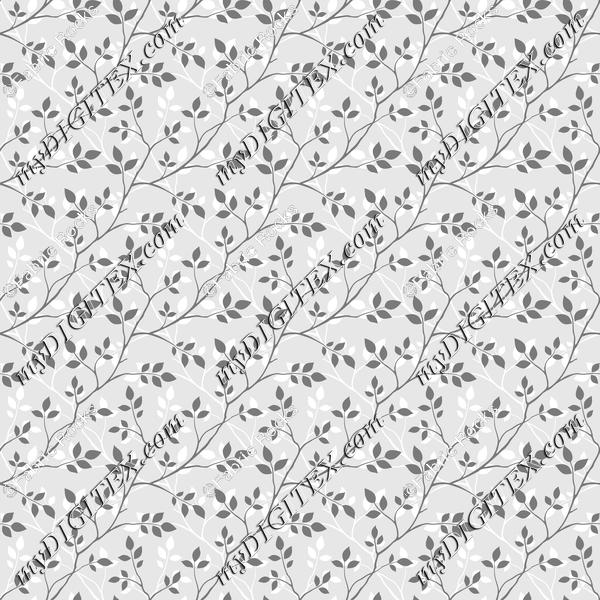 © Fabric Rocks
© Fabric Rocks
© Fabric Rocks
myDIGITEX.com
myDIGITEX.com
myDIGITEX.com
© Fabric Rocks
© Fabric Rocks
© Fabric Rocks
myDIGITEX.com
myDIGITEX.com
myDIGITEX.com
© Fabric Rocks
© Fabric Rocks
© Fabric Rocks
myDIGITEX.com
myDIGITEX.com
myDIGITEX.com